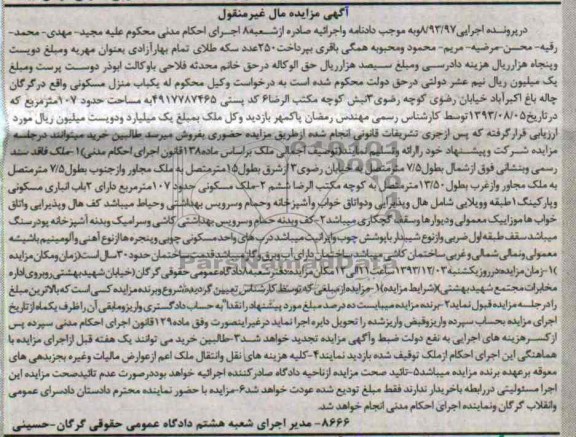 آگهی مزایده مال غیرمنقول
درپرونده اجرایی۸/۹۳/۹۷وبه موجب دادنامه واجرائیه صادره ازشعبه۸ اجرای احکام مدنی محکوم علیه مجید- مهدی- محمد-
رقیه- محسن- مرضیه- مریم- محمود ومحبوبه همگی باقری بپرداخت۲۵۰عدد سکه طلای تمام بهارآزادی بعنوان مهریه ومبلغ دویست
وپنجاه هزارریال هزینه دادرسی ومبلغ سیصد هزارریال حق الوکاله درحق خانم محدثه فلاحی باوکالت ابوذر دوست پرست ومبلغ
یک میلیون ریال نیم عشر دولتی درحق دولت محکوم شده است به درخواست وکیل محکوم له یکباب منزل مسکونی واقع درگرگان
چاله باغ اکبرآباد خیابان رضوی کوچه رضوی۳نبش کوچه مکتب الرضا۶ کد پستی ۴۹۱۷۷۸۷۴۶۵به مساحت حدود ۱۰۷مترمربع که
در تاریخ۱۳۹۳/۰۸/۰۵توسط کارشناس رسمی مهندس رمضان پاکمهر بازدید وکل ملک بمبلغ یک میلیارد ودویست میلیون ریال مورد
ارزیابی قرارگرفته که پس ازجری تشریفات قانونی انجام شده ازطریق مزایده حضوری بفروش میرسد طالبین خرید میتوانند درجلسه
مزایده شرکت وپیشنهاد خود راارائه وشرکت نمایند.(توصیف اجمالی ملک براساس ماده۱۳۸قانون اجرای احکام مدنی)۱-ملک فاقد سند
رسمی وبنشانی فوق ازشمال بطول۷/۵ مترمتصل به خیابان رضوی۳ ازشرق بطول۱۵مترمتصل به ملک مجاور وازجنوب بطول۷/۵ مترمتصل
به ملک مجاور وازغرب بطول ۱۳/۵۰مترمتصل به کوچه مکتب الرضا ششم ۲-ملک مسکونی حدود ۱۰۷ مترمربع دارای ۲باب انباری مسکونی
وپارکینگ۱طبقه وویلایی شامل هال وپذیرایی ودواتاق خواب وآشپزخانه وحمام وسرویس بهداشتی وحیاط میباشد کف هال وپذیرایی واتاق
خواب ها موزاییک معمولی ودیوارها وسقف گچکاری میباشد۲-کف وبدنه حمام وسرویس بهداشتی کاشی وسرامیک وبدنه آشپزخانه پودرسنگ
میباشد سقف طبقه اول ضربی وازنوع شیبدار باپوشش چوب وایرانیت میباشد درب های واحد مسکونی چوبی وپنجره هاازنوع آهنی وآلومینیم باشیشه
معمولی ونمای شمالی و غربی ساختمان کاشی میباشد،ساختمان دارای آب وبرق وگاز میباشدقدمت ساختمان حدود ۳۰سال است(زمان ومکان مزایده
)۱-زمان مزایده درروزیکشنبه ۱۳۹۳/۱۲/۰۳ ساعت ۱۱الی۱۲ مکان مزایده دفترشعبه۸دادگاه عمومی حقوقی گرگان(خیابان شهیدبهشتی روبروی اداره
مخابرات مجتمع شهیدبهشتی)(شرایط مزایده)۱-مزایده ازمبلغی که توسط کارشناس تعیین گردیده شروع وبرنده مزایده کسی است که بالاترین مبلغ
را درجلسه مزایده قبول نماید۲-برنده مزایده میبایست ده درصد مبلغ مورد پیشنهاد را نقدا" به حساب دادگستری واریز ومابقی آن را ظرف یکماه ازتاریخ
اجرای مزایده بحساب سپرده واریز وقبض واریز شده را تحویل دایره اجرا نماید درغیراینصورت وفق ماده۱۲۹ قانون اجرای احکام مدنی سپرده پس
از کسر هزینه های اجرایی به نفع دولت ضبط وآگهی مزایده تجدید خواهد شد۳-طالبین خرید می توانند یک هفته قبل ازاجرای مزایده با
هماهنگی این اجرای احکام ازملک توقیف شده بازدید نمایند۴-کلیه هزینه های نقل وانتقال ملک اعم ازعوارض مالیات وغیره بجزبدهی های
معوقه برعهده برنده مزایده میباشد۵-تائید صحت مزایده ازناحیه دادگاه صادرکننده اجرائیه خواهد بود درصورت عدم تائیدصحت مزایده این
اجرا مسئولیتی دررابطه باخریدار ندارند فقط مبلغ تودیع شده عودت خواهد شد۶-مزایده با حضور نماینده محترم دادستان دادسرای عمومی
وانقلاب گرگان ونماینده اجرای احکام مدنی انجام خواهد شد.
۸۶۶۶- مدیر اجرای شعبه هشتم دادگاه عمومی حقوقی گرگان-حسینی